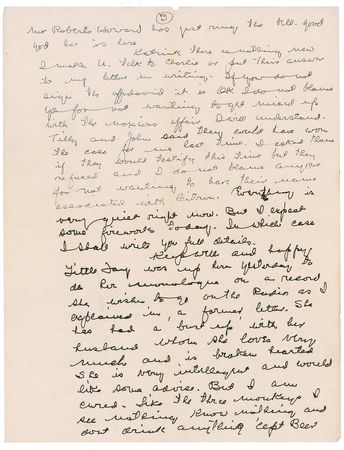 5
Mr Roberts Howard has just rung the bell. Good
God he is here
Katrink there is nothing new
I made U. talk to Charlie or put this answer
to my letter in writing. If you do not
sign the affidavid it is OK I do not blame
you for not wanting to get mixed up
with the noxious affair I understand.
Tilly and John said they could have won
the case for me last time. I asked them
if they would testify this time but they
refused and I do not blame anyone
for not wanting to have their name
associated with
Everything is
very quiet right now. But I expect
some fireworks today. In which case
I shall write you full details.
Keep well and happy
Little Jay was up here yesterday to
do her monologue on a record
She wishes to go on the Radio as I
explained in a former letter. She
has had a bust up with her
husband whom she loves very
much and is broken hearted
She is very intelligent and would
like some advise. But I am
cured. Like the three monkeys I
see nothing know nothing and
dont drink anything 'cept Beer